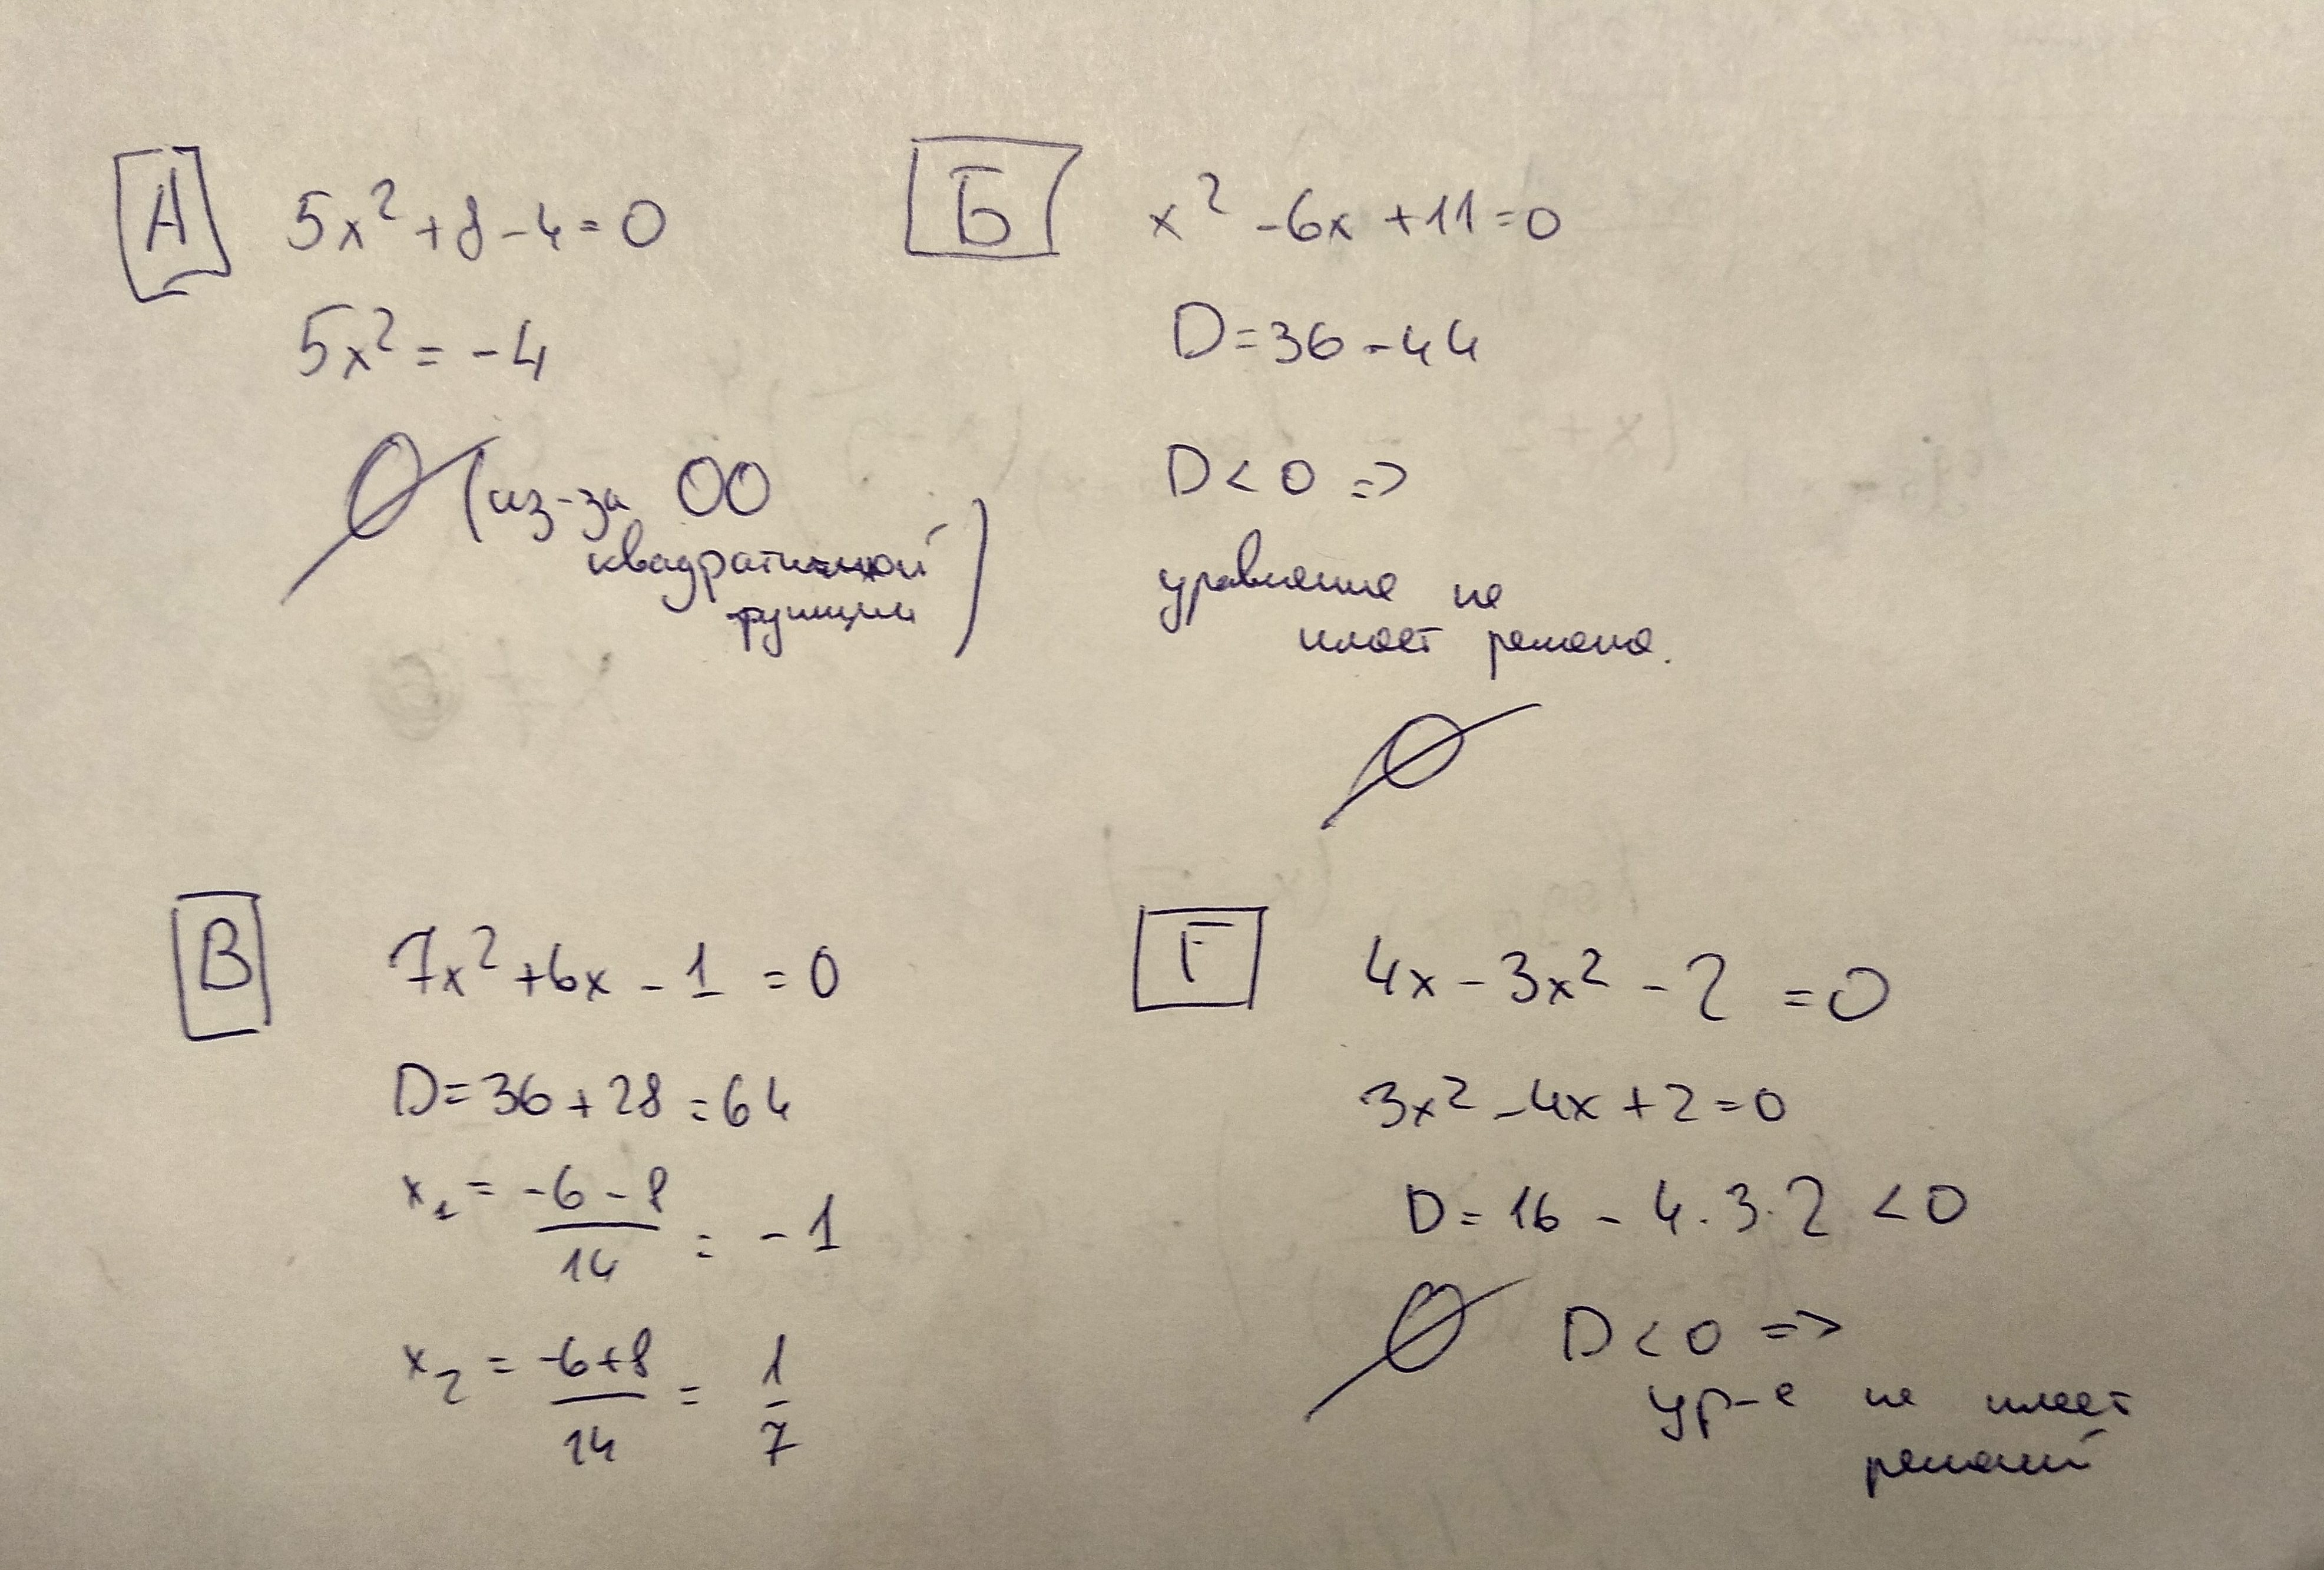 А 5x² + 8 - 4 = 0
5x² = -4
∅ (из-за ОО
квадратичной
функции)
Б x² - 6x + 11 = 0
D = 36 - 44
D < 0 =>
уравнение не
имеет решения.
∅
В 7x² + 6x - 1 = 0
D = 36 + 28 = 64
x₁ = (-6 - 8)/14 = -1
x₂ = (-6 + 8)/14 = 1/7
Г 4x - 3x² - 2 = 0
3x² - 4x + 2 = 0
D = 16 - 4 · 3 · 2 < 0
∅ D < 0 =>
ур-е не имеет
решений